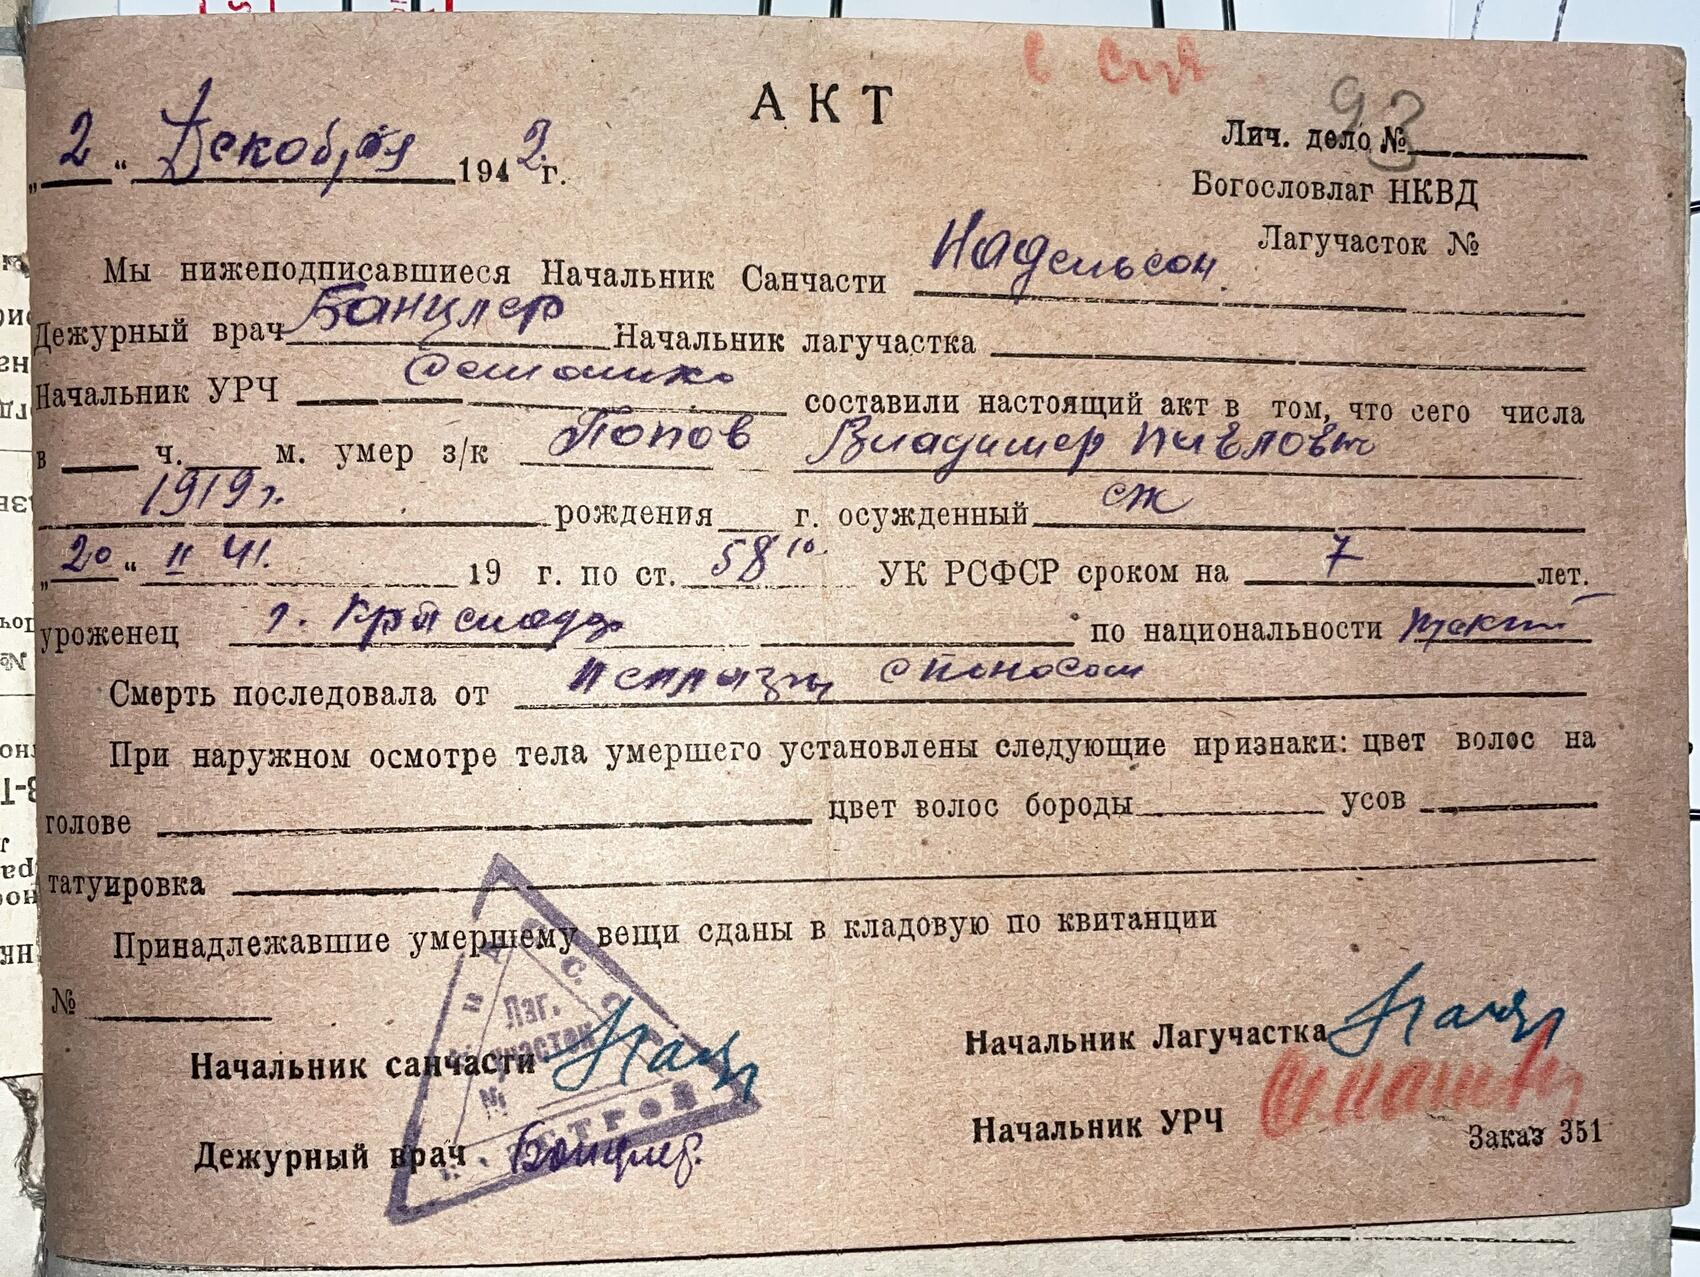 93
АКТ
„2“ Декобря 1942 г.
Лич. дело №
Богословлаг НКВД
Лагучасток №
Мы нижеподписавшиеся Начальник Санчасти Надельсон.
Дежурный врач Банцлер Начальник лагучастка
Начальник УРЧ составили настоящий акт в том, что сего числа
в ч. м. умер з/к Попов Владимер Павлович
1919 г. рождения г. осужденный
„20“ II 41. 19 г. по ст. 58 10. УК РСФСР сроком на 7 лет.
уроженец г. Краснодар по национальности
Смерть последовала от с поносом
При наружном осмотре тела умершего установлены следующие признаки: цвет волос на
голове цвет волос бороды усов
татуировка
Принадлежавшие умершему вещи сданы в кладовую по квитанции
№
Лаг.
участок
№
Начальник санчасти
Начальник Лагучастка
Дежурный врач Банцлер.
Начальник УРЧ
Заказ 351